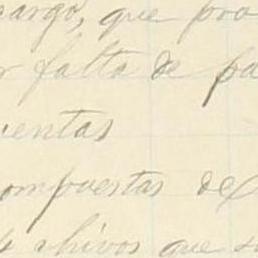 bargo, que pro
r falta de pa
uentas
ompuestas de
s chivos que s